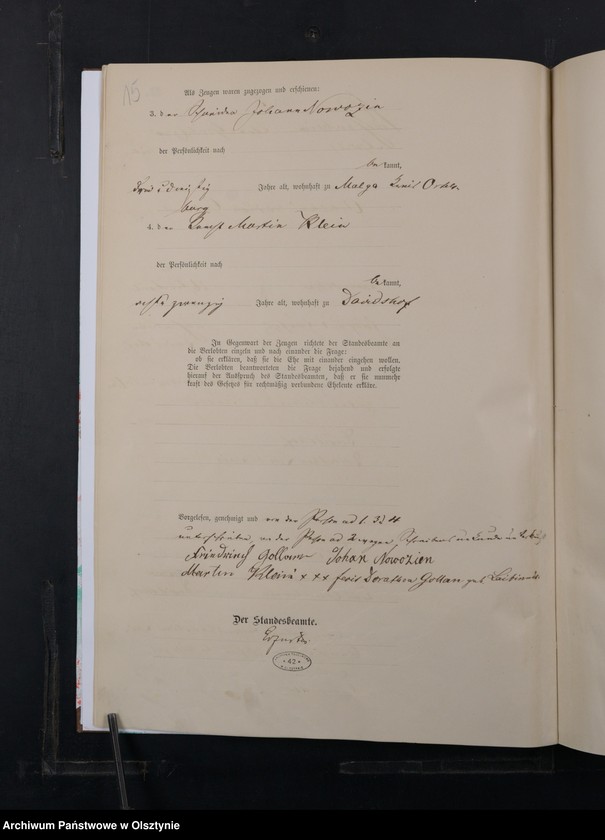 15
Als Zeugen waren zugezogen und erschienen:
3. der Schneider Johann Nowozin
der Persönlichkeit nach
be kannt,
Jahre alt, wohnhaft zu Malga Kreis Ortels
burg
4. der Knecht Martin Klein
der Persönlichkeit nach
be kannt,
zwanzig Jahre alt, wohnhaft zu Davidshof
In Gegenwart der Zeugen richtete der Standesbeamte an
die Verlobten einzeln und nach einander die Frage:
ob sie erklären, daß sie die Ehe mit einander eingehen wollen.
Die Verlobten beantworteten die Frage bejahend und erfolgte
hierauf der Ausspruch des Standesbeamten, daß er sie nunmehr
kraft des Gesetzes für rechtmäßig verbundene Eheleute erkläre.
Vorgelesen, genehmigt und von den
unterschrieben, von der wegen
Friedrich Gollan Johan Nowozien
Martin Klein x x x Dorothea Gollan geb
Der Standesbeamte.
42
Archiwum Państwowe w Olsztynie